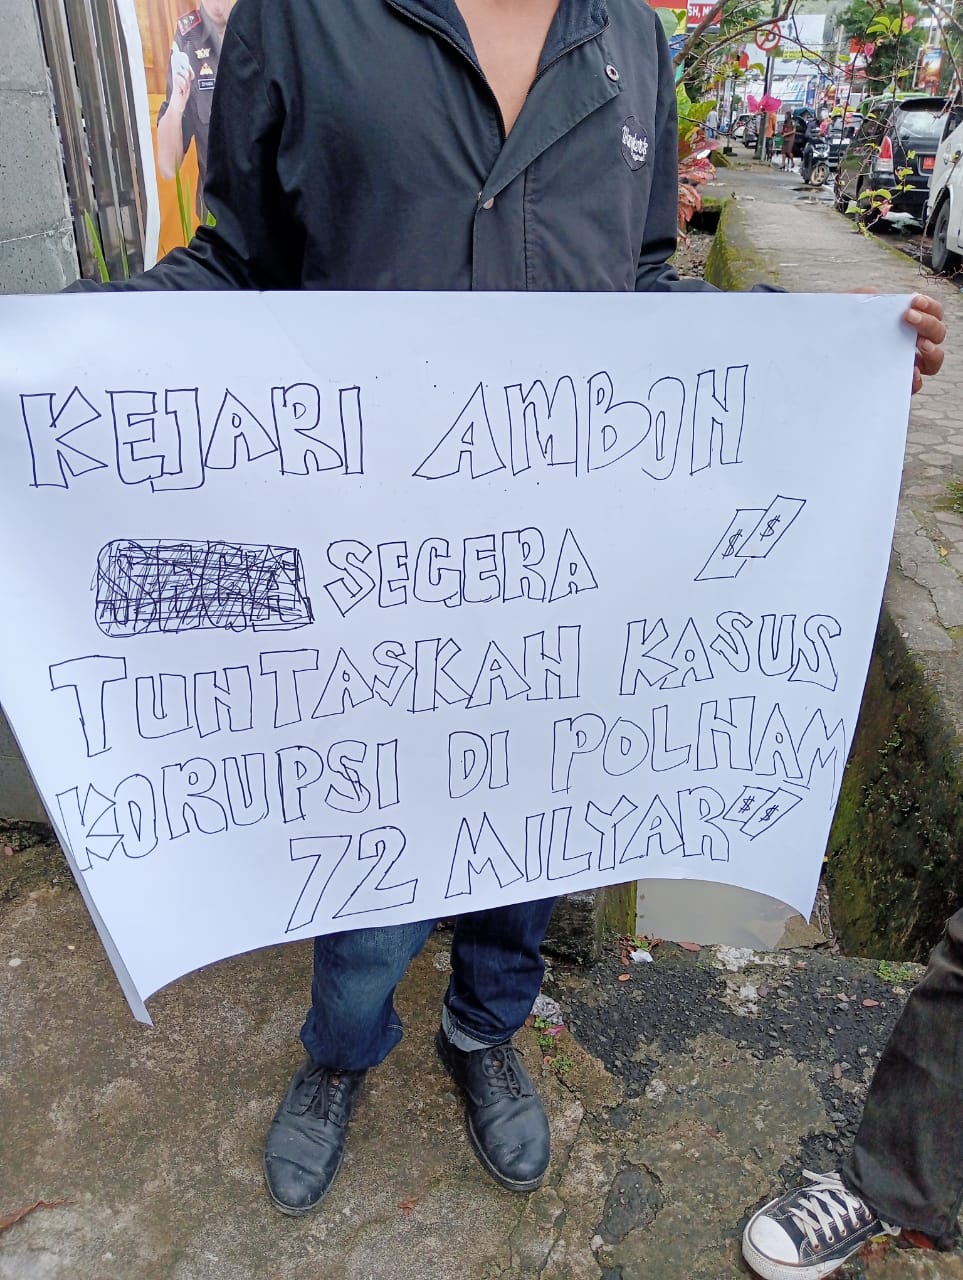 KEJARI AMBON
SEGERA
$ $
TUNTASKAN KASUS
KORUPSI DI POLNAM
72 MILYAR $ $